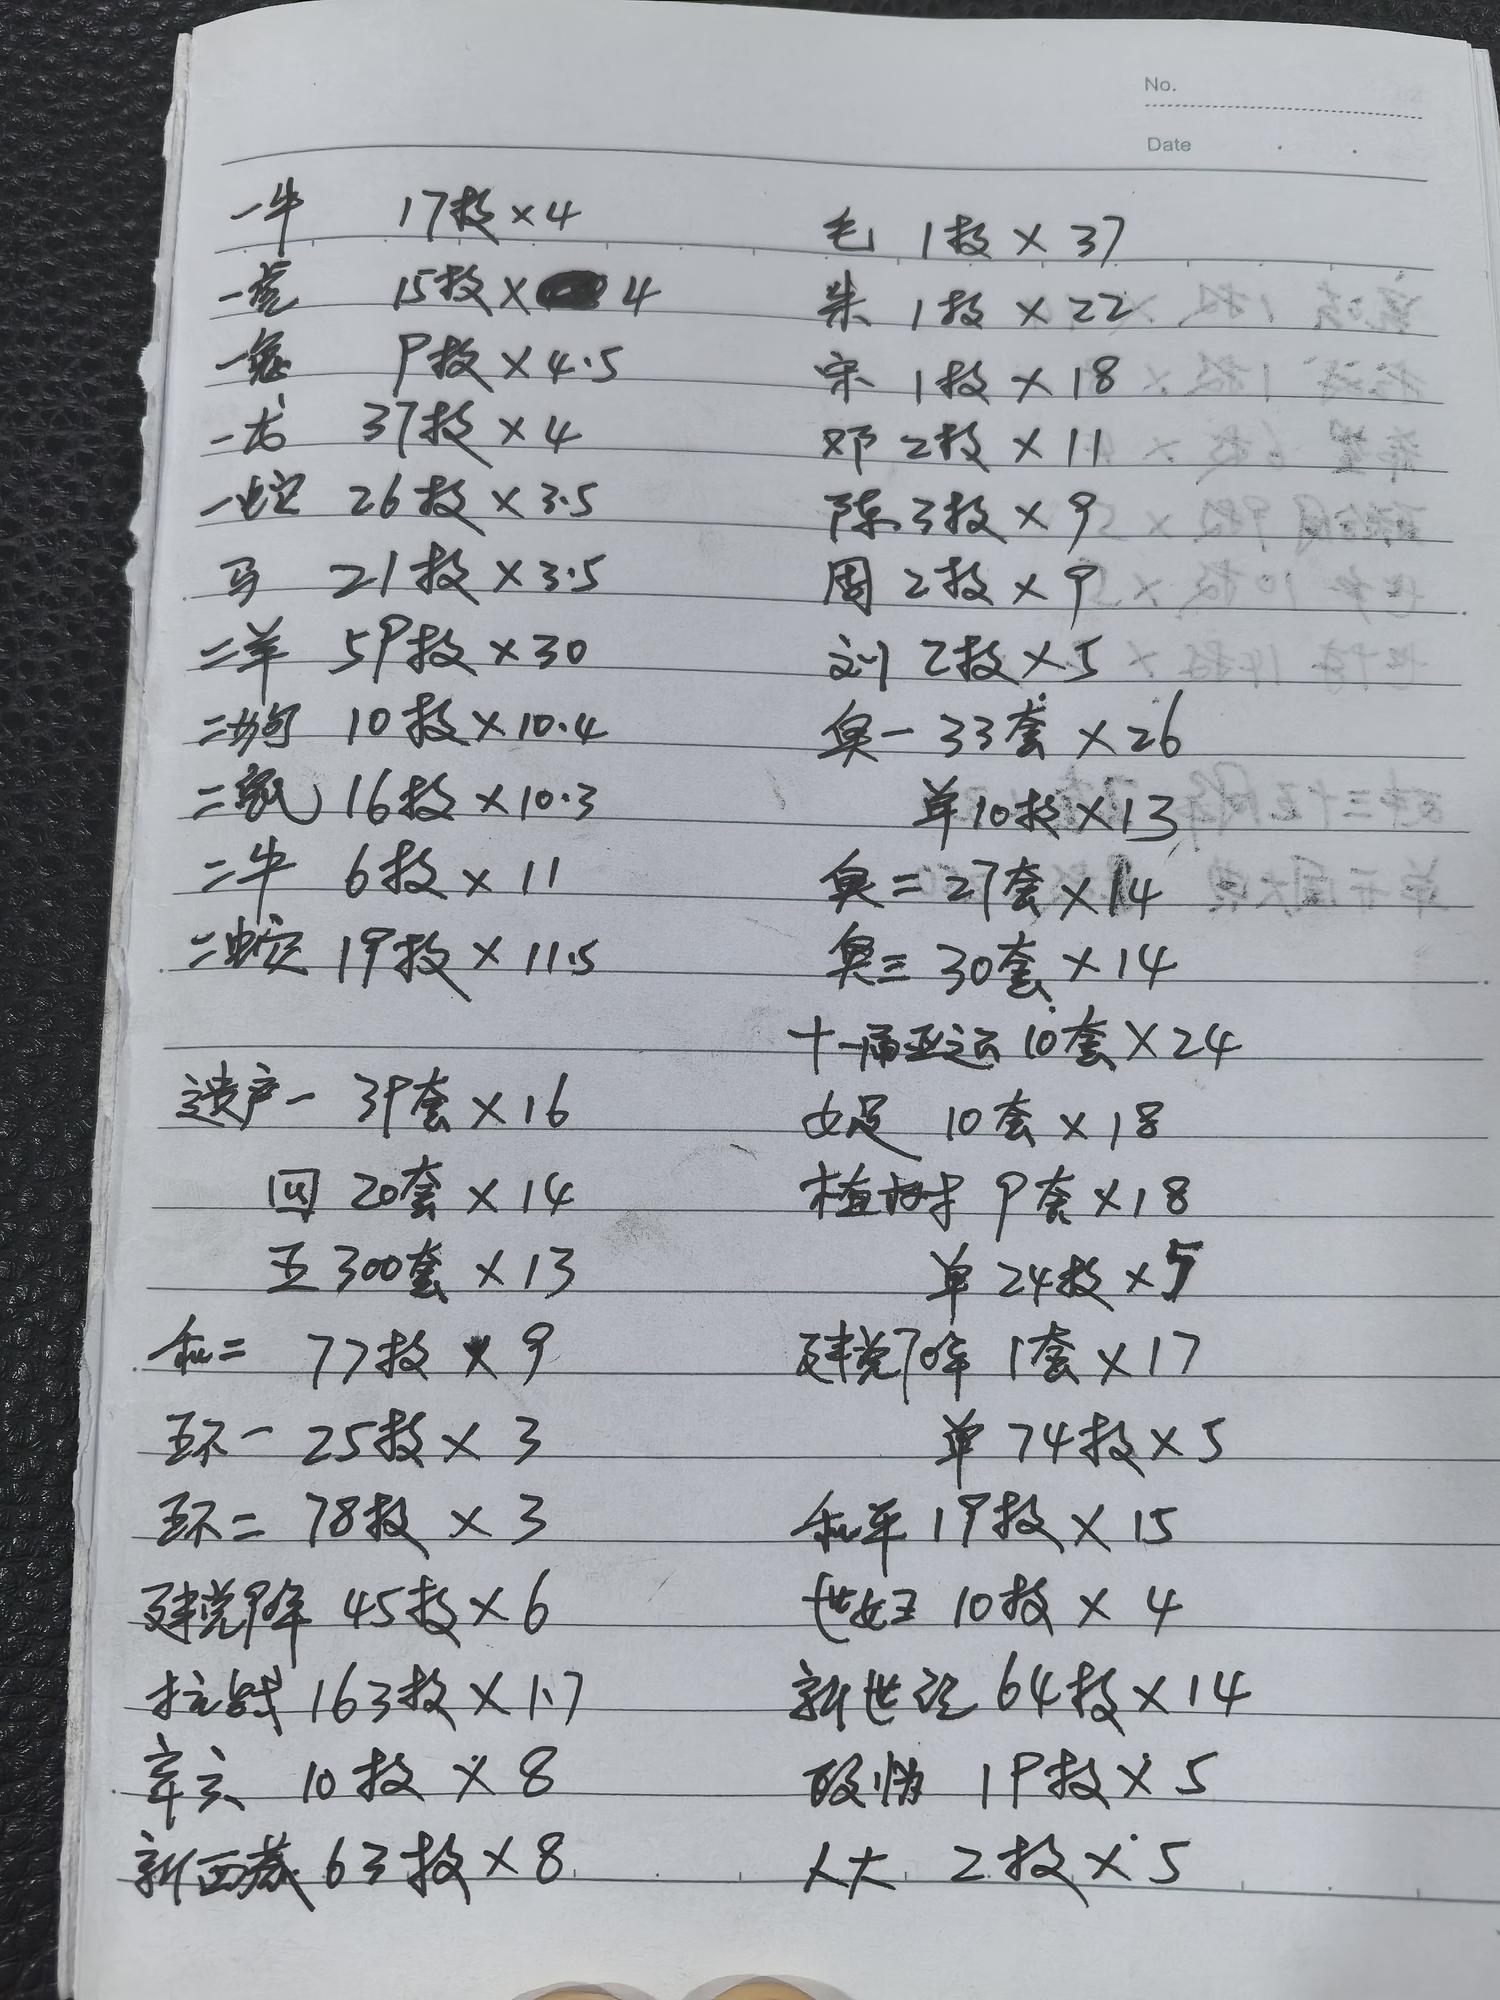 No.
Date
一牛 17枚×4
一虎 15枚× 4
一兔 9枚×4.5
一龙 37枚×4
一蛇 26枚×3.5
马 21枚×3.5
二羊 59枚×30
二狗 10枚×10.4
二家 16枚×10.3
二牛 6枚×11
二蛇 19枚×11.5
遗产一 39套×16
四 20套×14
五 300套×13
和二 77枚×9
环一 25枚×3
环二 78枚×3
建党90年 45枚×6
抗战 163枚×1.7
辛亥 10枚×8
新西藏 63枚×8
毛 1枚×37
朱 1枚×22
宋 1枚×18
邓 2枚×11
陈 3枚×9
周 2枚×9
刘 2枚×5
奥一 33套×26
单10枚×13
奥二 27套×14
奥三 30套×14
十一届亚运 10套×24
女足 10套×18
植树 9套×18
单 24枚×5
建党70年 1套×17
单 74枚×5
和平 19枚×15
世女 10枚×4
新世纪 64枚×14
19枚×5
人大 2枚×5